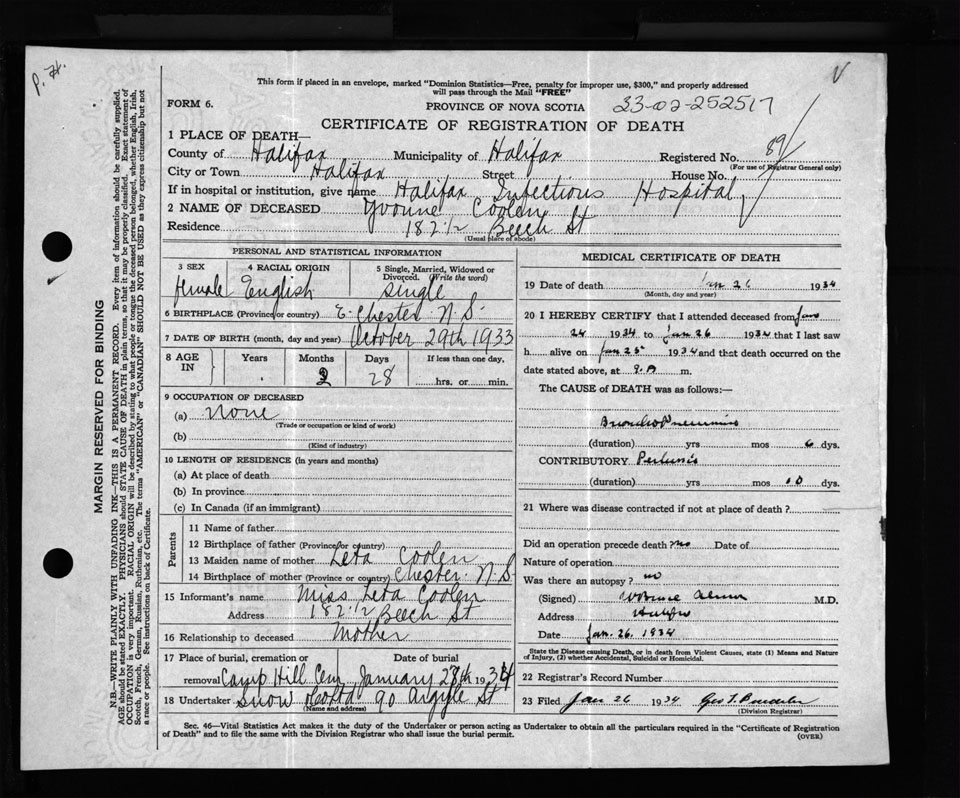 P. H.
V
This form if placed in an envelope, marked "Dominion Statistics—Free, penalty for improper use, $300," and properly addressed
will pass through the Mail "FREE"
FORM 6.
PROVINCE OF NOVA SCOTIA
33-02-252517
CERTIFICATE OF REGISTRATION OF DEATH
1 PLACE OF DEATH—
County of Halifax Municipality of Halifax Registered No. 89
(For use of Registrar General only)
City or Town Halifax Street House No.
If in hospital or institution, give name Halifax Infectious Hospital
2 NAME OF DECEASED Yvonne Coolen
Residence 182 1/2 Beech St
(Usual place of abode)
PERSONAL AND STATISTICAL INFORMATION
3 SEX 4 RACIAL ORIGIN 5 Single, Married, Widowed or
Divorced. (Write the word)
female English single
6 BIRTHPLACE (Province or country) E. Chester N.S.
7 DATE OF BIRTH (month, day and year) October 29th 1933
8 AGE IN Years Months Days If less than one day,
2 28 hrs. or min.
9 OCCUPATION OF DECEASED
(a) none
(Trade or occupation or kind of work)
(b)
(Kind of industry)
10 LENGTH OF RESIDENCE (in years and months)
(a) At place of death
(b) In province
(c) In Canada (if an immigrant)
Parents
11 Name of father
12 Birthplace of father (Province or country)
13 Maiden name of mother Leta Coolen
14 Birthplace of mother (Province or country) Chester N.S
15 Informant's name Miss Leta Coolen
Address 182 1/2 Beech St
16 Relationship to deceased Mother
17 Place of burial, cremation or Date of burial
removal Camp Hill Cem January 28th 1934
18 Undertaker Snow 90 Argyle St
(Name and address)
MEDICAL CERTIFICATE OF DEATH
19 Date of death Jan 26 1934
(Month, day and year)
20 I HEREBY CERTIFY that I attended deceased from Jan
24 1934 to Jan 26 1934 that I last saw
h alive on Jan 25 1934 and that death occurred on the
date stated above, at m.
The CAUSE of DEATH was as follows:—
Broncho Pneumonia
(duration) yrs mos 6 dys.
CONTRIBUTORY Pertussis
(duration) yrs mos 10 dys.
21 Where was disease contracted if not at place of death?
Did an operation precede death? no Date of
Nature of operation
Was there an autopsy? no
(Signed) M.D.
Address Halifax
Date Jan. 26. 1934
State the Disease causing Death, or in death from Violent Causes, state (1) Means and Nature
of Injury, (2) whether Accidental, Suicidal or Homicidal.
22 Registrar's Record Number
23 Filed Jan 26 1934
(Division Registrar)
Sec. 46—Vital Statistics Act makes it the duty of the Undertaker or person acting as Undertaker to obtain all the particulars required in the "Certificate of Registration
of Death" and to file the same with the Division Registrar who shall issue the burial permit.
(OVER)
MARGIN RESERVED FOR BINDING
N.B.—WRITE PLAINLY WITH UNFADING INK—THIS IS A PERMANENT RECORD. Every item of information should be carefully supplied.
AGE should be stated EXACTLY. PHYSICIANS should STATE CAUSE OF DEATH in plain terms, so that it may be properly classified. Exact statement of
OCCUPATION is very important. RACIAL ORIGIN will be described by stating to what people or tongue the deceased person belonged, whether English, Irish,
Scotch, French, German, Russian, Ruthenian, etc. The terms "AMERICAN" or "CANADIAN" SHOULD NOT BE USED as they express citizenship but not
a race or people. See instructions on back of Certificate.